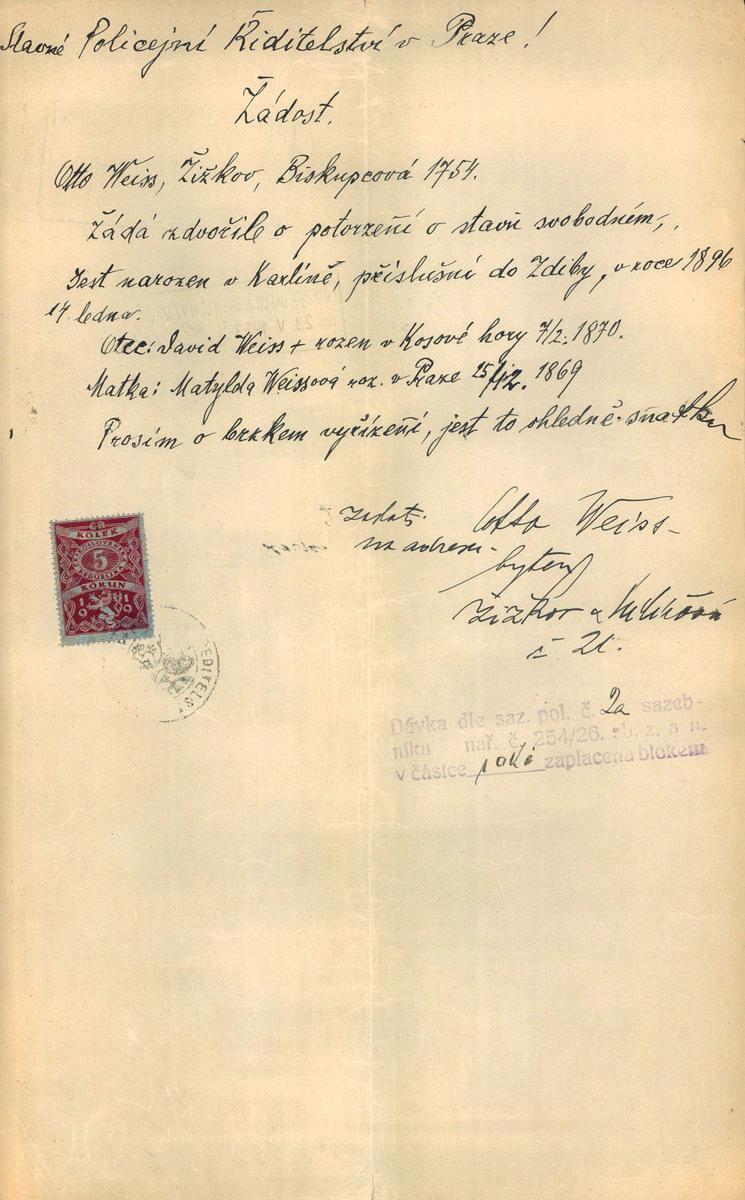 Slavné Policejní Řiditelství v Praze!
Žádost.
Otto Weiss, Žižkov, Biskupcová 1754.
Žádá zdvořile o potvrzení o stavu svobodném,
Jest narozen v Karlíně, příslušní do Zdiby, v roce 1896
14. ledna.
Otec: David Weiss + rozen v Kosové hory 7/2. 1870.
Matka: Matylda Weissová roz. v Praze 25/12. 1869
Prosím o brzkem vyřízení, jest to ohledně snatku
Otto Weiss
na adresu
bytem
Žižkov
č 21.
KOLEK
5
KORUN
1919
ŘEDITELS
Dávka dle saz. pol. č. 2a sazeb-
níku nař. č. 254/26. sb. z. a n.
v částce zaplacena blokem